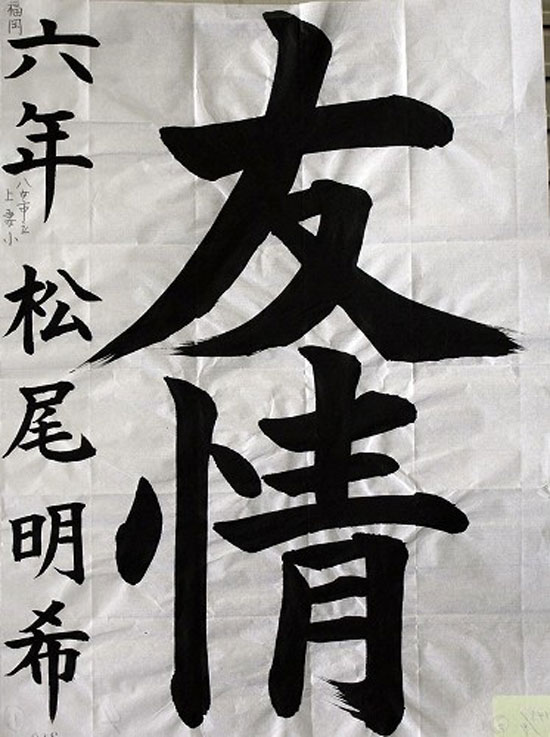 友情
六年 松尾明希
福岡
八女市立
上妻小